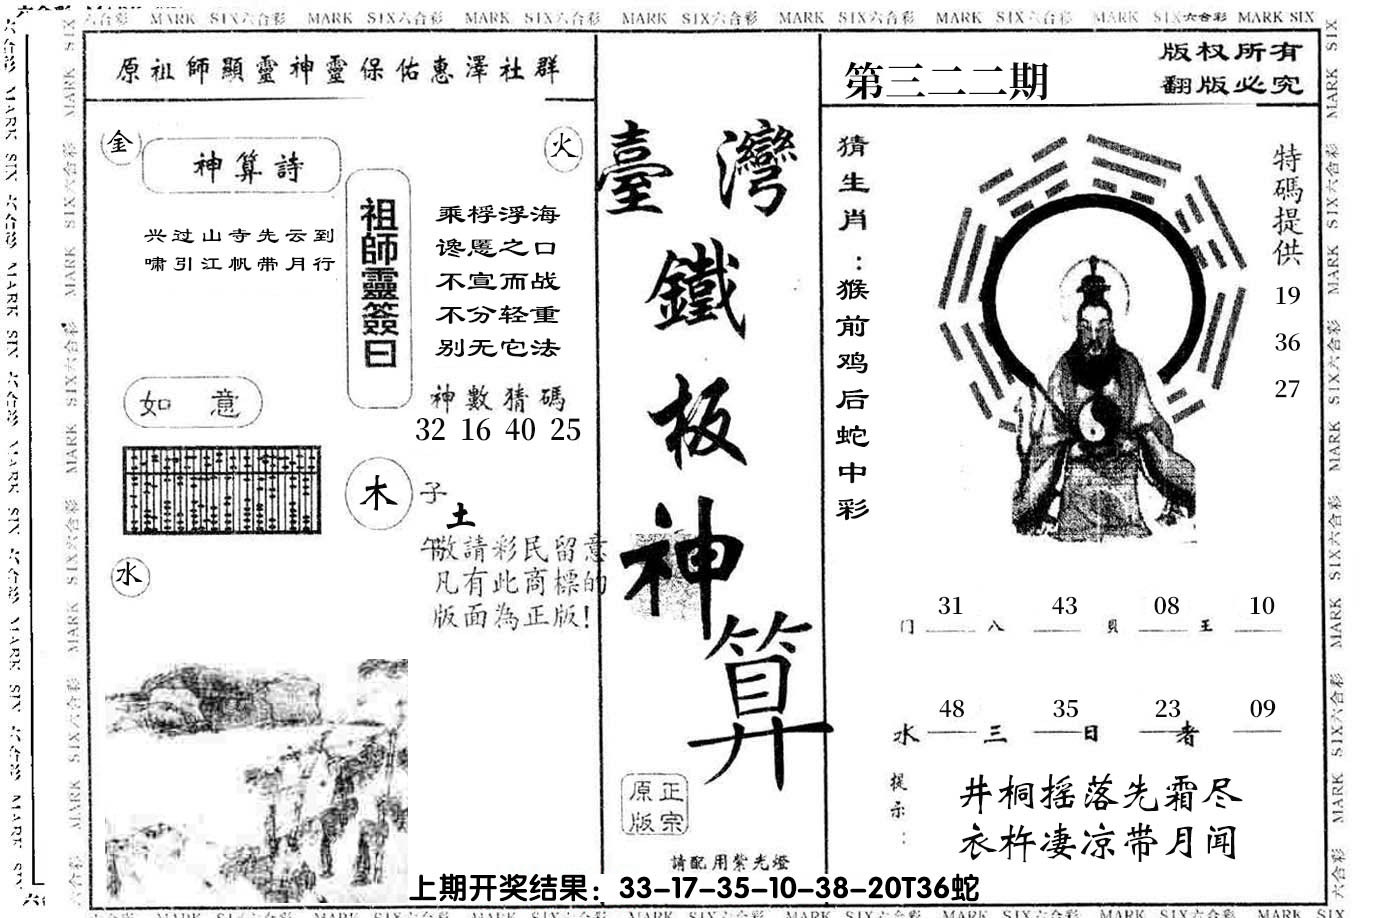 MARK SIX六合彩 MARK SIX六合彩 MARK SIX六合彩 MARK SIX六合彩 MARK SIX六合彩 MARK SIX六合彩 MARK SIX六合彩 MARK SIX
原祖師顯靈神靈保佑惠澤社群
金
神算詩
火
兴过山寺先云到
啸引江帆带月行
祖師靈簽曰
乘桴浮海
谗慝之口
不宣而战
不分轻重
别无它法
神數猜碼
32 16 40 25
如意
木
子
土
午
水
敬請彩民留意
凡有此商標的
版面為正版!
臺灣
鐵
板
神
算
正宗
原版
請配用紫光燈
第三二二期
版权所有
翻版必究
猜生肖:猴前鸡后蛇中彩
特碼提供
19
36
27
31 43 08 10
门 八 貝 王
48 35 23 09
水 三 日 者
提示:
井桐摇落先霜尽
衣杵凄凉带月闻
上期开奖结果：33-17-35-10-38-20T36蛇